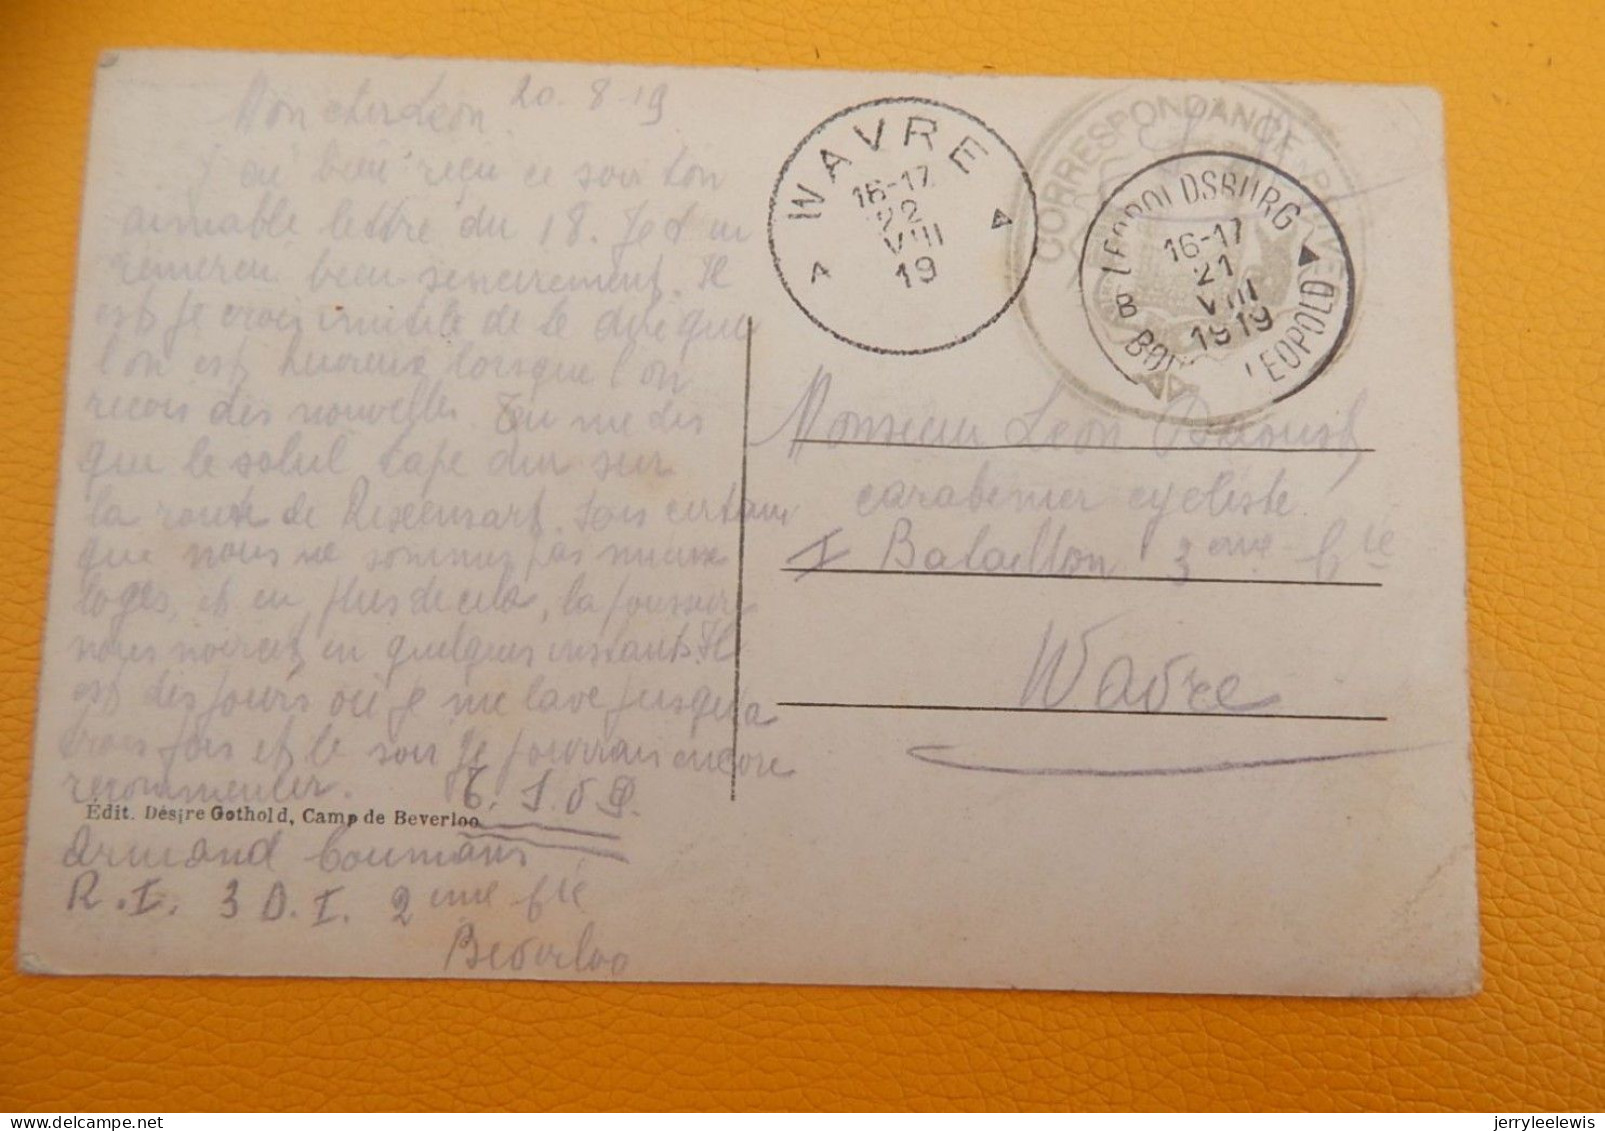 Mon cher Leon. 20-8-19
J'ai bien reçu ce soir ton
aimable lettre du 18. Je t'en
remercie bien sincèrement. Il
est je crois inutile de te dire que
l'on est heureux lorsque l'on
recois des nouvelles. Tu me dis
que le soleil tape dur sur
la route de Rixensart. Sois certain
que nous ne sommes pas mieux
logés, et en plus de cela, la poussière
nous noircit en quelques instants. Il
est des jours où je me lave jusqu'a
trois fois et le soir je pourrais encore
recommencer.
Édit. Désire Gothold, Camp de Beverloo
Armand Coumans
R.I. 3 D.I. 2eme Cie
Beverloo
WAVRE
16-17
22
VIII
19
CORRESPONDANCE PRIVEE
LEOPOLDSBURG
16-17
21
VIII
1919
B B
LEOPOLD
Monsieur Leon
carabinier cycliste
I Bataillon 3eme Cie
Wavre
jerryleelewis